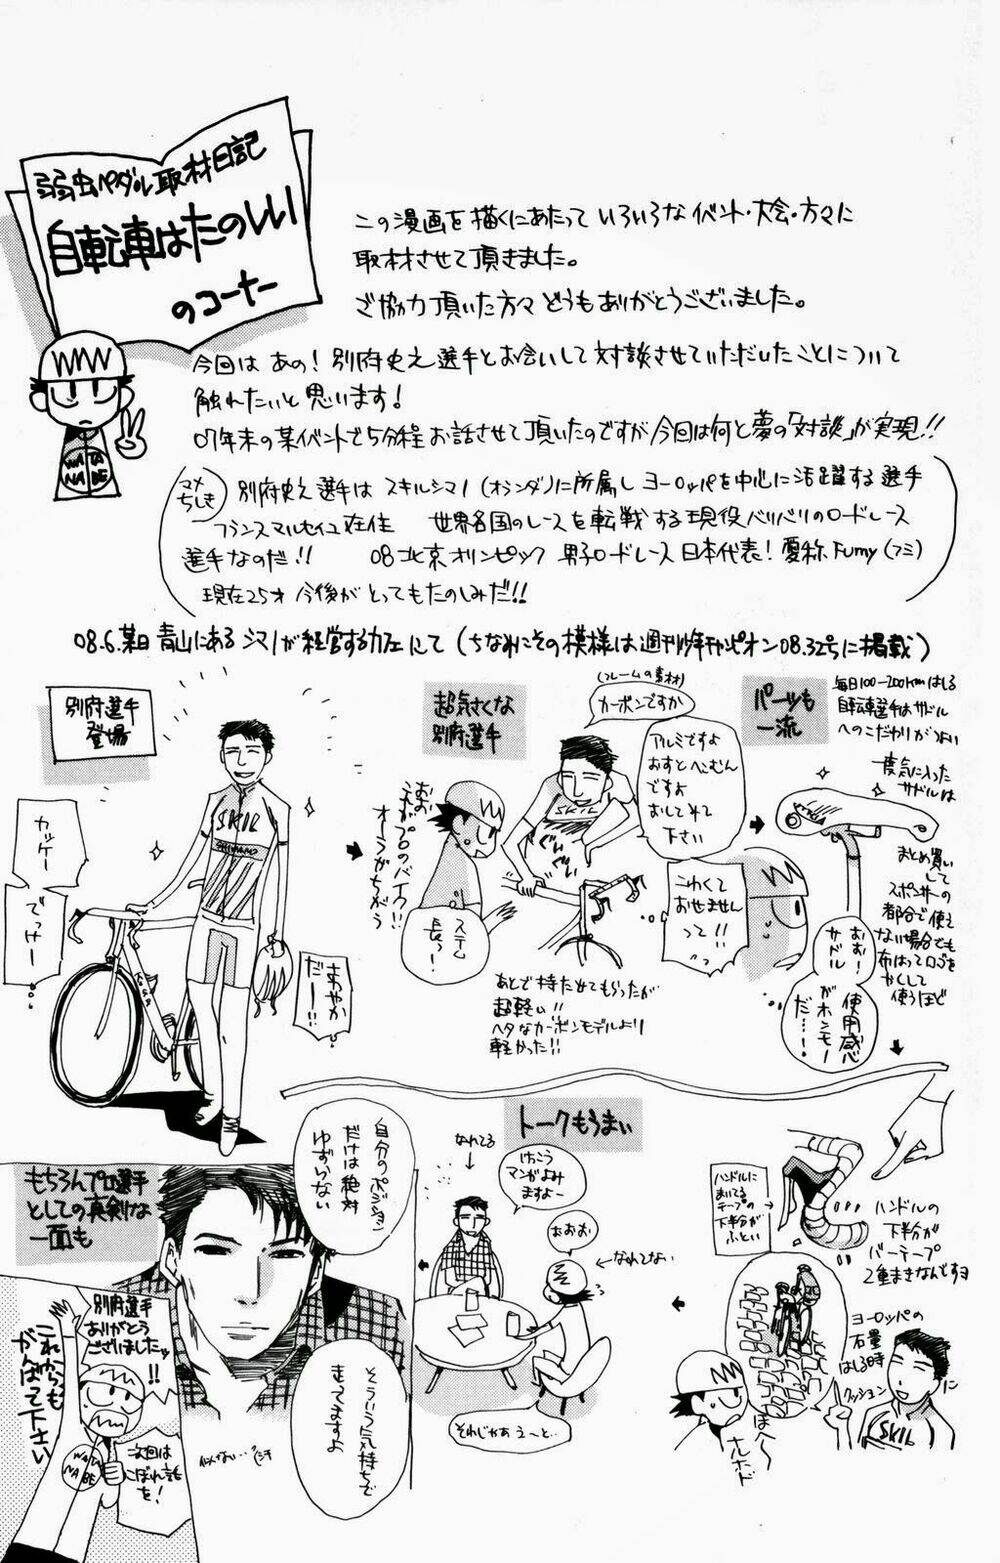 弱虫ペダル取材日記
自転車はたのしい
のコーナー
この漫画を描くにあたって いろいろなイベント・大会・方々に
取材させて頂きました。
ご協力頂いた方々 どうもありがとうございました。
今回は あの! 別府史之選手とお会いして 対談させていただいたことについて
触れたいと思います!
07年末の某イベントで5分程 お話させて頂いたのですが今回は何と夢の「対談」が実現!!
マメ
ちしき
別府史之選手は スキルシマノ(オランダ)に所属し ヨーロッパを中心に活躍する選手
フランスマルセイユ在住 世界各国のレースを転戦する現役バリバリのロードレース
選手なのだ!! 08北京オリンピック 男子ロードレース日本代表! 愛称Fumy(フミ)
現在25才 今後が とってもたのしみだ!!
08.6.某日 青山にある シマノが経営するカフェにて (ちなみにその模様は週刊少年チャンピオン08.32号に掲載)
別府選手
登場
カッケー
でっけー
さわやか
だー!!
SKIL
SHIMANO
超気さくな
別府選手
(フレームの素材)
カーボンですか
アルミですよ
おすとへこむん
ですよ
おしてみて
下さい
おお
プロのバイク!!
オーラがちがう
ステム
長っ!
SKIL
こわくて
おせません
って!!
あとで持たせてもらったが
超軽い!!
ヘタなカーボンモデルより
軽かった!!
パーツも
一流
毎日100-200kmはしる
自転車選手はサドル
へのこだわりがつよい
一度気に入った
サドルは
まとめ買い
して
スポンサーの
都合で使え
ない場合でも
布はってロゴを
かくして
使うほど
おお!
サドル
使用感
がホンモノ
だ…!
ハンドルに
まいてる
テープの
下半分が
ふとい
ハンドルの
下半分が
バーテープ
2重まきなんですヨ
ヨーロッパの
石畳
はしる時
クッションに
SKIL
ほへ〜
ナルホド
トークもうまい
なれてる
けっこう
マンガよみ
ますよー
おおお
なれてない
それじゃあ え〜と…
もちろんプロ選手
としての真剣な
一面も
自分のポジション
だけは絶対
ゆずらない
そういう気持ちで
走ってますよ
似てない…
別府選手
ありがとう
ございましたッ
!!
これからも
がんばって下さい
次回は
こぼれ話
を!
WATA
NABE